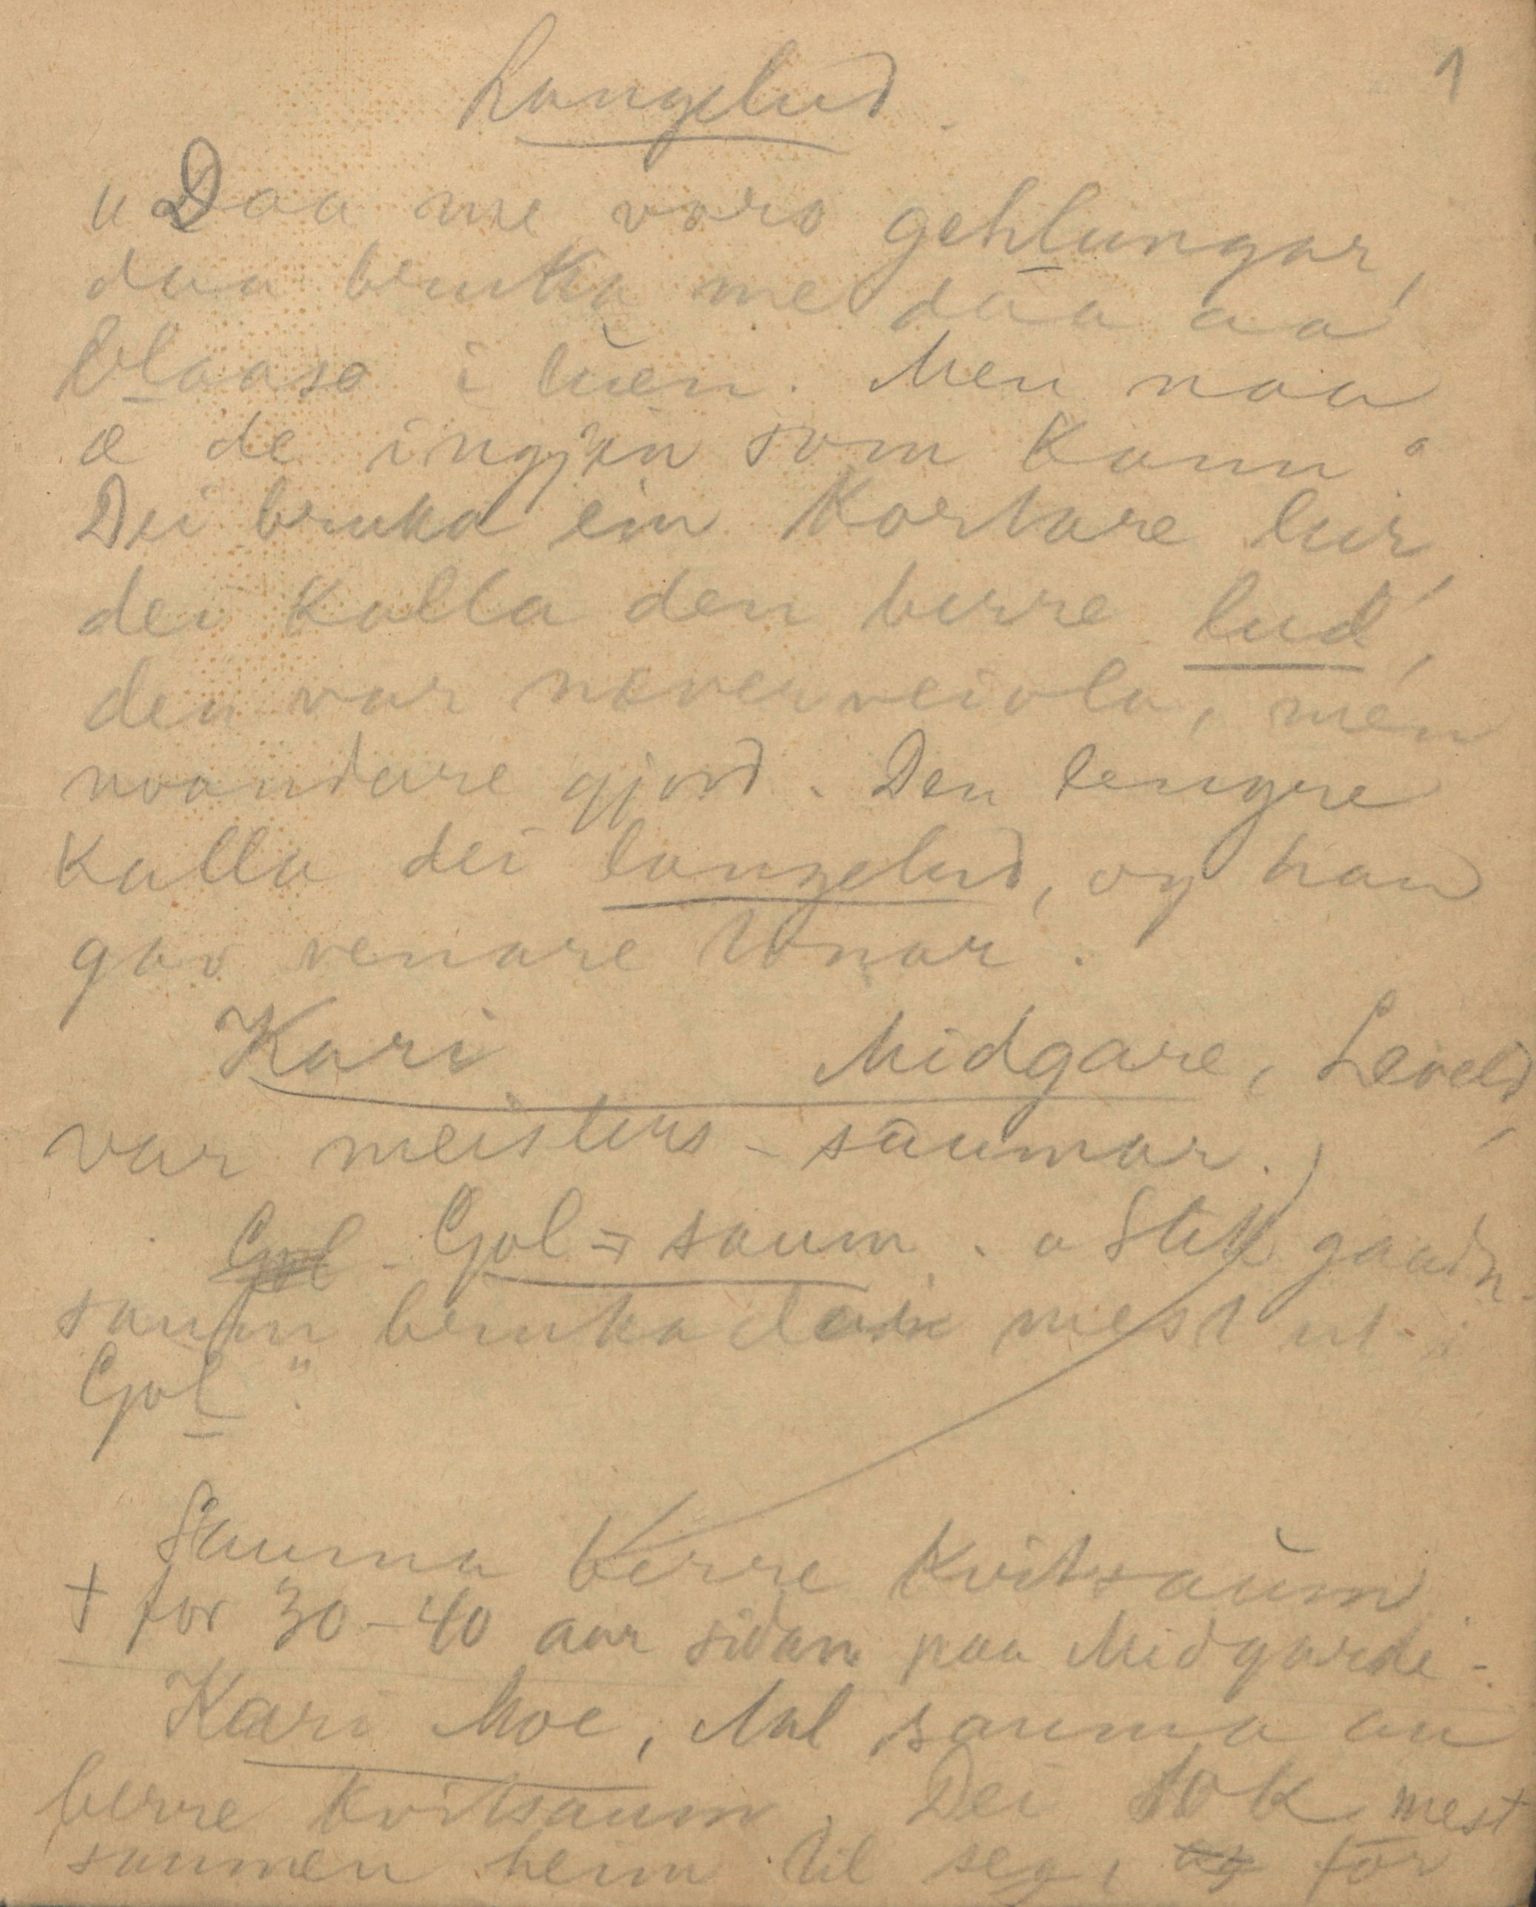 1
Langelud.
"Daa me voro gehlungar,
daa bruka me daa aa
blaase i luen. Men naa
æ de ingjin som kann"
Dei bruka ein kortare lur,
dei kalla den berre lud,
den var næverveivla, men
vandare gjord. Den lengre
kalla dei langelud, og han
gav venare tonar.
Kari Midgare, Leveld,
var meisters-saumar.
Gol - Gol-saum. "Stuttgaadn-
saum bruka mest ut i
Gol".
Sauma berre kvitsaum.
+ for 30-40 aar sidan paa Midgarde.
Kari Moe, Aal sauma au
berre kvitsaum. Dei tok mest
saumen heim til seg, og for